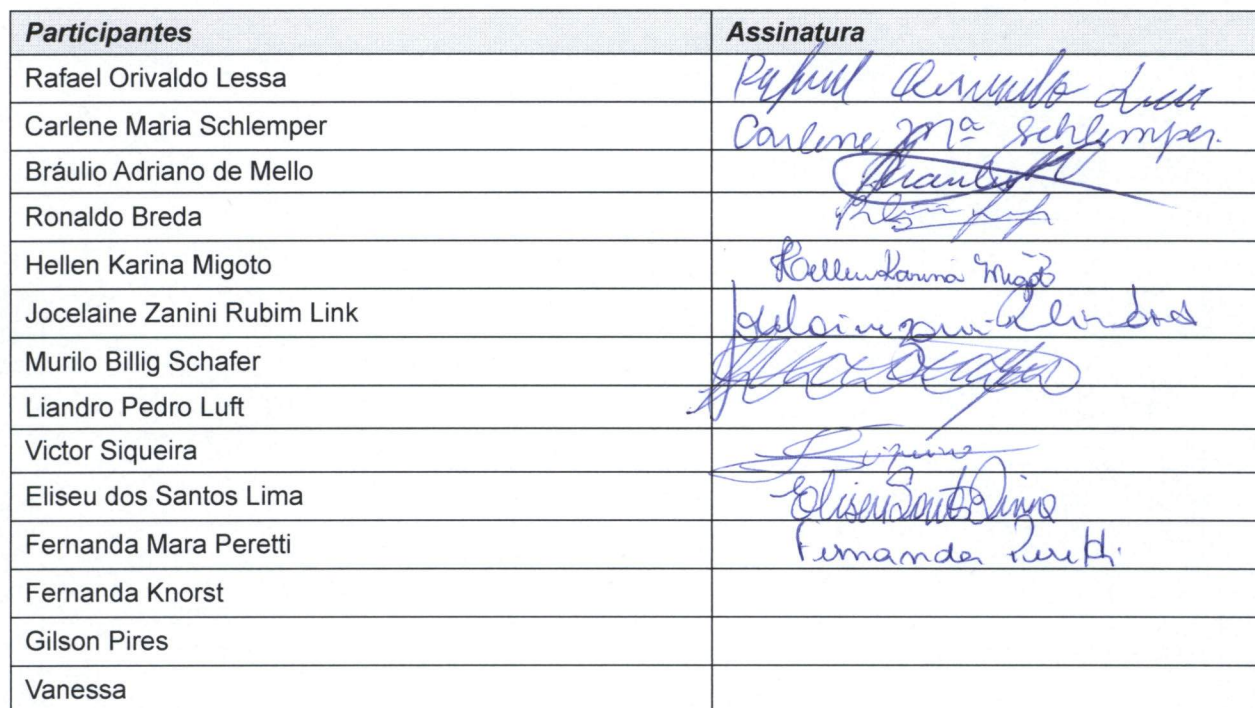 Participantes Assinatura
Rafael Orivaldo Lessa Rafael Orivaldo Lessa
Carlene Maria Schlemper Carlene Mª Schlemper.
Bráulio Adriano de Mello Braulio
Ronaldo Breda
Hellen Karina Migoto Hellen Karina Migoto
Jocelaine Zanini Rubim Link Jocelaine
Murilo Billig Schafer
Liandro Pedro Luft
Victor Siqueira
Eliseu dos Santos Lima Eliseu Santos Lima
Fernanda Mara Peretti Fernanda Peretti
Fernanda Knorst
Gilson Pires
Vanessa